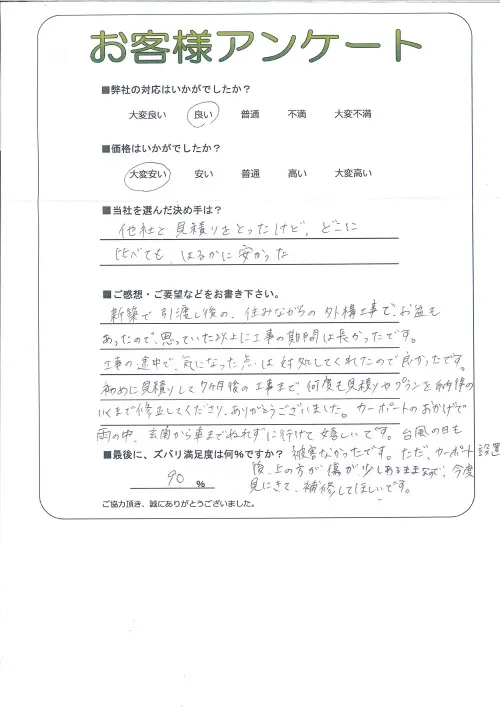 お客様アンケート
■弊社の対応はいかがでしたか?
大変良い 良い 普通 不満 大変不満
■価格はいかがでしたか?
大変安い 安い 普通 高い 大変高い
■当社を選んだ決め手は?
他社と見積りをとったけど、どこに
比べても、はるかに安かった
■ご感想・ご要望などをお書き下さい。
新築で引渡し後の、住みながらの外構工事で、お盆も
あったので、思っていた以上に工事の期間は長かったです。
工事の途中で、気になった点は対処してくれたので良かったです。
初めに見積りして7ヶ月後の工事まで、何度も見積りやプランを納得の
いくまで修正してくださり、ありがとうございました。カーポートのおかげで
雨の中、玄関から車までぬれずに行けて嬉しいです。台風の日も
■最後に、ズバリ満足度は何%ですか? 被害なかったです。ただ、カーポート設置
後、上の方が傷が少しあるままなので、今度
90 % 見にきて、補修してほしいです。
ご協力頂き、誠にありがとうございました。